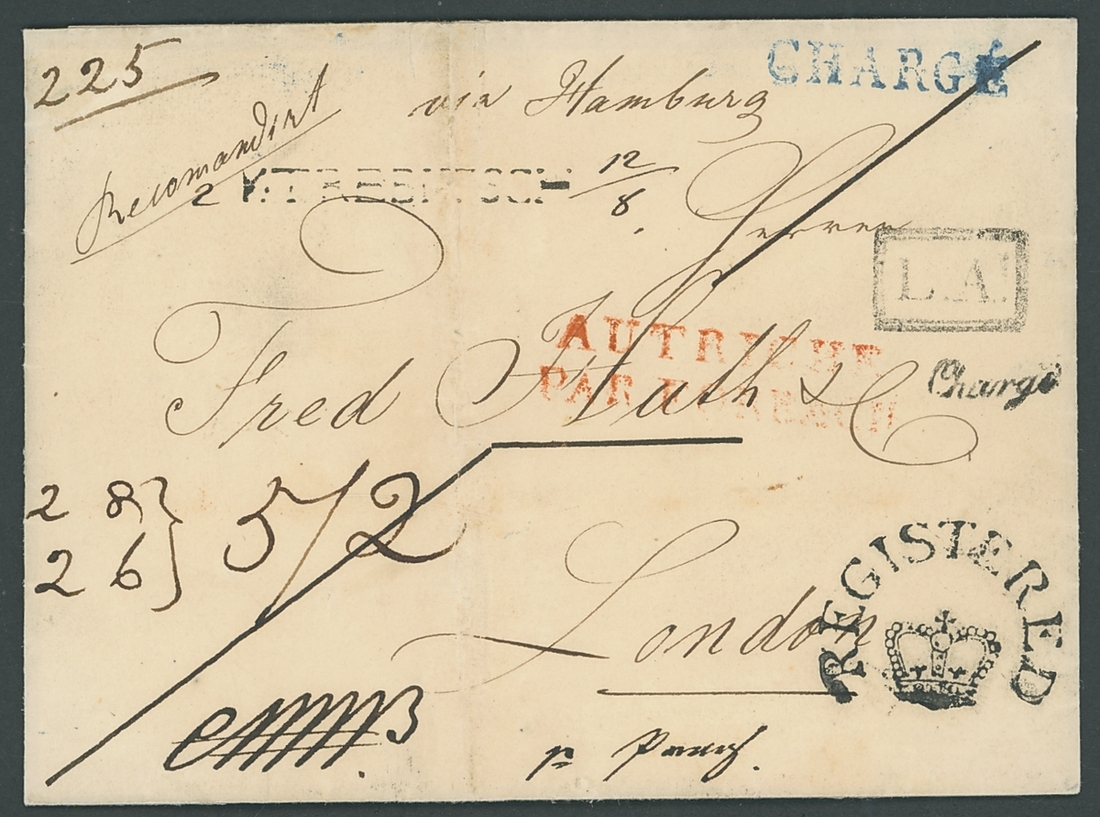 225
CHARGÉ
via Hamburg
Recomandirt
2 V. TREBITSCH 12/8
Herren
L.A.
AUTRICHE
PAR FORBACH
Fred Huth & C
Chargé
2 8 } 5/2
2 6
REGISTERED
London
3
pr